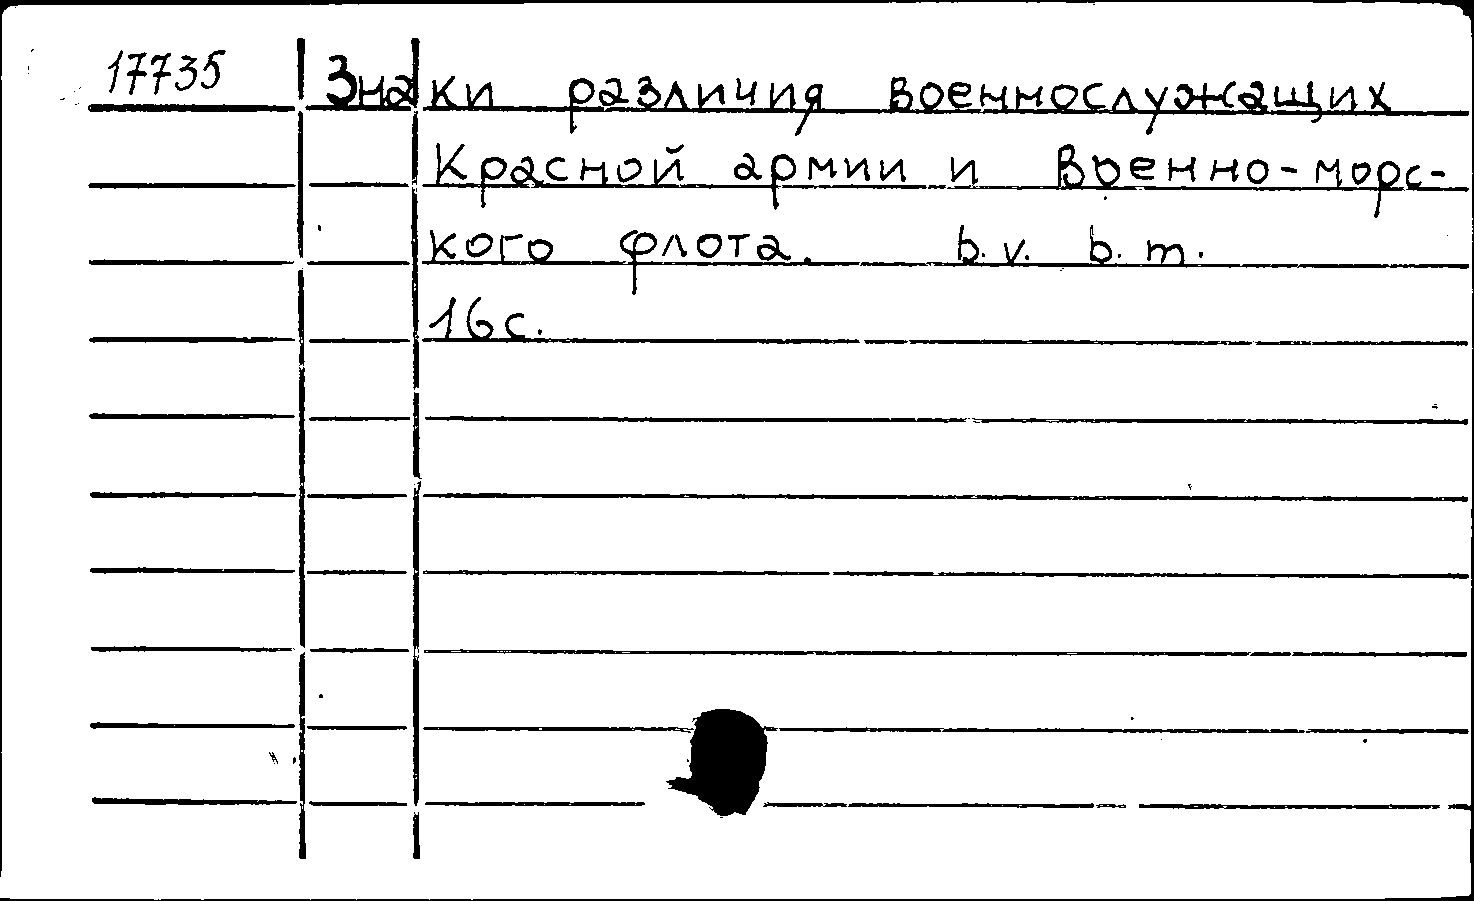 17735 Знаки различия военнослужащих
Красной армии и Военно-морс-
кого флота. b.v. b.m.
16с.